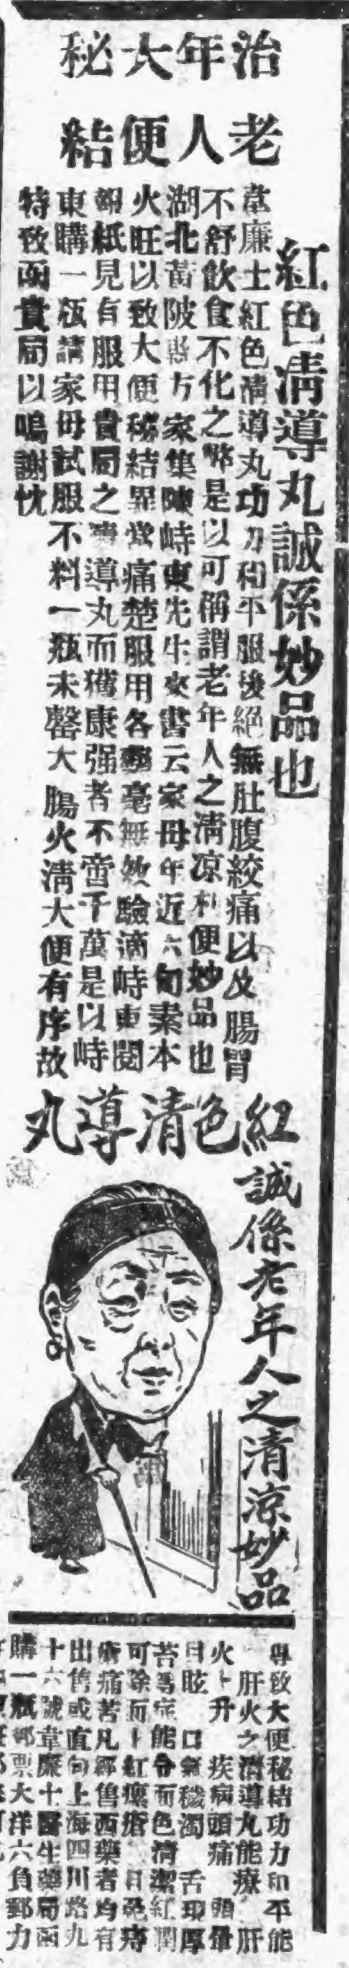 治年大秘
老人便結
紅色清導丸誠係妙品也
韋廉士紅色清導丸功力和平服後絕無肚腹絞痛以及腸胃
不舒飲食不化之弊是以可稱謂老年人之清凉利便妙品也
湖北黃陂縣方家集陳峙東先生來書云家母年近六旬素本
火旺以致大便秘結異常痛楚服用各藥毫無效驗適峙東閱
報紙見有服用貴局之清導丸而獲康强者不啻千萬是以峙
東購一瓶請家母試服不料一瓶未罄大腸火清大便有序故
特致函貴局以鳴謝忱
紅色清導丸
誠係老年人之清涼妙品
專致大便秘結功力和平能
肝火之清導丸能療 肝
火上升 疾病頭痛 頭暈
目眩 口氣穢濁 舌現厚
苔等症能令面色清潔紅潤
可除面上紅瘰瘡 痔
瘡痛苦凡經售西藥者均有
出售或直向上海四川路九
十六號韋廉士醫生藥局函
購一瓶郵票大洋六角郵力